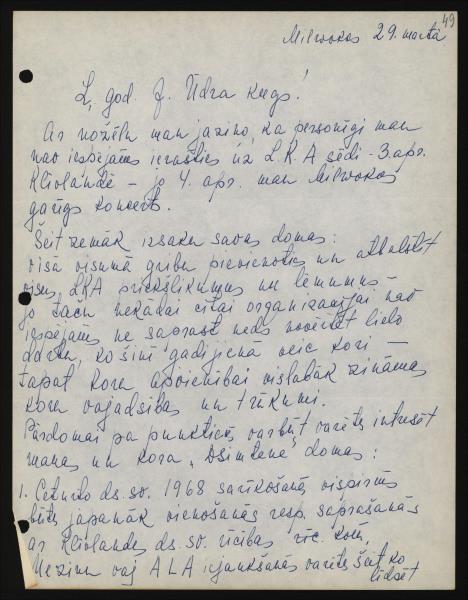 49
Milwokos 29. martā
L. god. J. Ūdra kungs!
Ar nožēlu man jāziņo, ka personīgi man
nav iespējams ierasties uz L.K.A sēdi - 3. apr.
Klīvlandē - jo 4. apr. man Milwokos
garīgs koncerts.
Šeit zemāk izsaku savas domas:
visā visumā gribu pievienoties un atbalstīt
visus LKA priekšlikumus un lēmumus -
jo taču nekādai citai organizācijai nav
iespējams ne saprast neds novērtēt lielo
darbu, ko šinī gadījienā veic kori -
tāpat koru apvienībai vislabāk zināmas
koru vajadzības un trūkumi.
Pārdomai pa punktiem varbūt varētu intresēt
manas un kora „Dzimtene" domas:
1. Ceturto ds. sv. 1968 sarīkošanas vispirms
būtu jāpanāk vienošanās resp. saprašanās
ar Klīvlandes ds. sv. rīcības rīc. kom.
Nezinu vaj ALA iejaukšanās varētu šeit ko
līdzēt